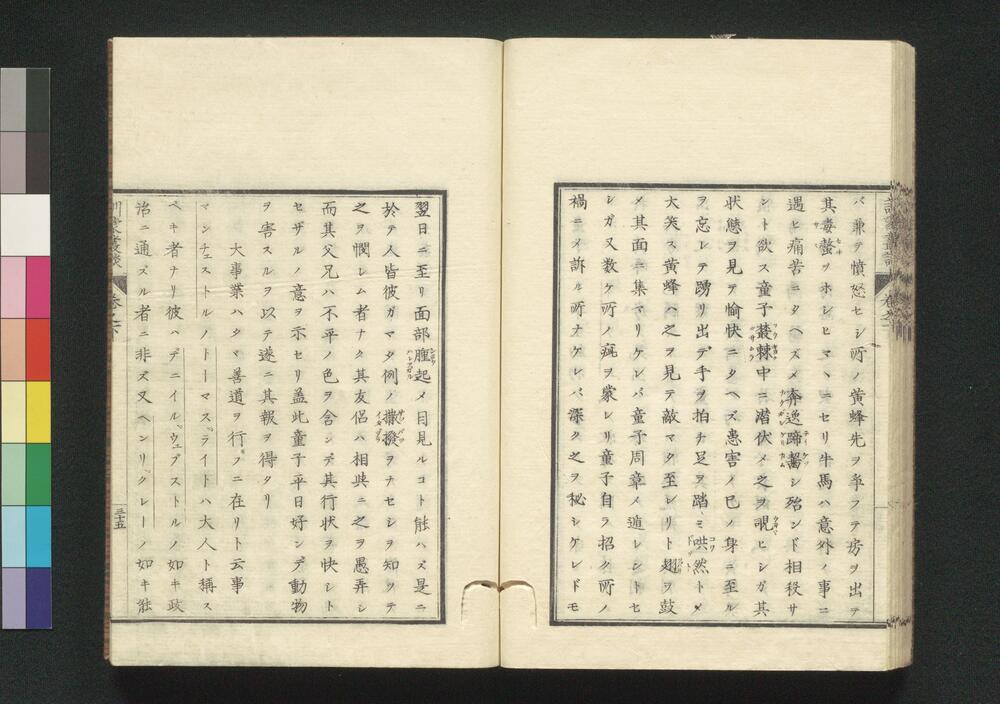 バ兼テ憤怒セシ所ノ黄蜂先ヲ争フテ房ヲ出テ
其毒螫ヲホシヒマヽニセリ牛馬ハ意外ノ事ニ
遇ヒ痛苦ニタヘズ〆奔逸蹄齧シ殆ンド相殺サ
ント欲ス童子叢棘中ニ潜伏〆之ヲ覗ヒシガ其
状態ヲ見テ愉快ニタヘズ患害ノ已ノ身ニ至ル
ヲ忘レテ踴リ出デ手ヲ拍チ足ヲ踏ミ哄然ト〆
大笑ス黄蜂ハ之ヲ見テ敵マタ至レリト翅ヲ鼓
〆其面ニ集マリケレバ童子周章〆遁レントセ
シガ又数ケ所ノ疵ヲ蒙レリ童子自ラ招ク所ノ
禍ニ〆訴ル所ナケレバ深ク之ヲ秘シケレドモ
翌日ニ至リ面部腫起〆目見ルコト能ハズ是ニ
於テ人皆彼ガマタ例ノ撒撥ヲナセシヲ知ツテ
之ヲ憫レム者ナク其友侶ハ相共ニ之ヲ愚弄シ
而其父兄ハ不平ノ色ヲ含ンデ其行状ヲ快シト
セザルノ意ヲ示セリ蓋此童子平日好ンデ動物
ヲ害スルヲ以テ遂ニ其報ヲ得タリ
大事業ハタマ善道ヲ行フニ在リト云事
マンチェストルノトーマスライトハ大人ト称ス
ベキ者ナリ彼ハデニイルウェブストルノ如キ政
治ニ通ズル者ニ非ズ又ヘンリクレーノ如キ能
三十五